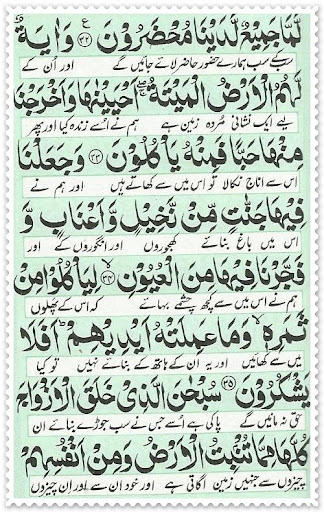 لَّمَّا جَمِیْعٌ لَّدَیْنَا مُحْضَرُوْنَ ﴿۳۲﴾ ع وَ اٰیَةٌ
سب کے سب ہمارے حضور حاضر لائے جائیں گے اور اُن کے
لَّهُمُ الْاَرْضُ الْمَیْتَةُ ۚۖ اَحْیَیْنٰهَا وَ اَخْرَجْنَا
لیے ایک نشانی مُردہ زمین ہے ہم نے اسے زندہ کیا اور پھر
مِنْهَا حَبًّا فَمِنْهُ یَاْكُلُوْنَ ﴿۳۳﴾ وَ جَعَلْنَا
اس سے اناج نکالا تو اس میں سے کھاتے ہیں اور ہم نے
فِیْهَا جَنّٰتٍ مِّنْ نَّخِیْلٍ وَّ اَعْنَابٍ وَّ
اس میں باغ بنائے کھجوروں اور انگوروں کے اور
فَجَّرْنَا فِیْهَا مِنَ الْعُیُوْنِ ﴿۳۴﴾ لِیَاْكُلُوْا مِنْ
ہم نے اس میں سے کچھ چشمے بہائے کہ اس کے پھلوں
ثَمَرِهٖ ۙ وَ مَا عَمِلَتْهُ اَیْدِیْهِمْ ؕ اَفَلَا
میں سے کھائیں اور یہ اُن کے ہاتھ کے بنائے نہیں تو کیا
یَشْكُرُوْنَ ﴿۳۵﴾ سُبْحٰنَ الَّذِیْ خَلَقَ الْاَزْوَاجَ
حق نہ مانیں گے پاکی ہے اُسے جس نے سب جوڑے بنائے ان
كُلَّهَا مِمَّا تُنْۢبِتُ الْاَرْضُ وَ مِنْ اَنْفُسِهِمْ
چیزوں سے جنہیں زمین اُگاتی ہے اور خود اُن سے اور اِن چیزوں